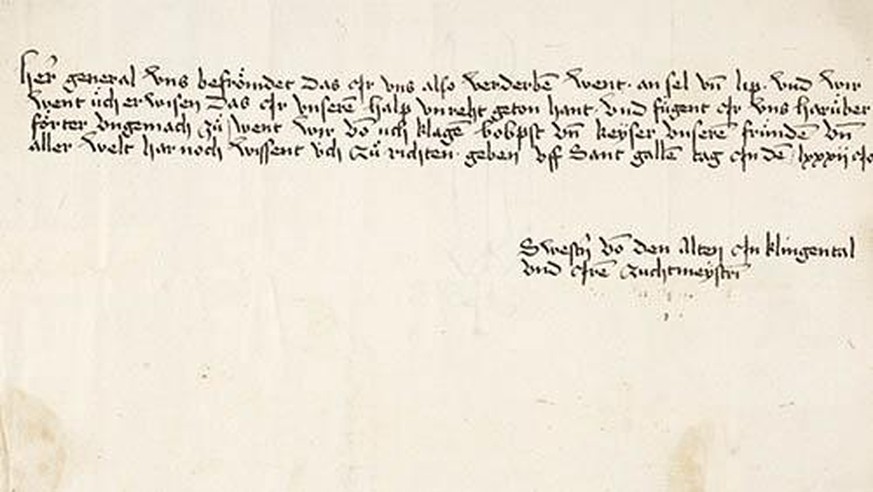 her general vns befrömdet das Jr vns also verderbē went · an sel vn̄ lip · vnd wir
went üch erwisen das Jr vnserē halp vnreht geton hant · vnd fügent Jr vns harüber
förter vngemach zů went wir vō uch klagē bobpst vn̄ keyser vnserē fründē vn̄
aller welt har noch wissent vch zů richten · geben vff Sant gallē tag Jn dē lxxxii Jo
Swestrī vō den alten Jn klingental
vnd Jrē zuchtmeystrī